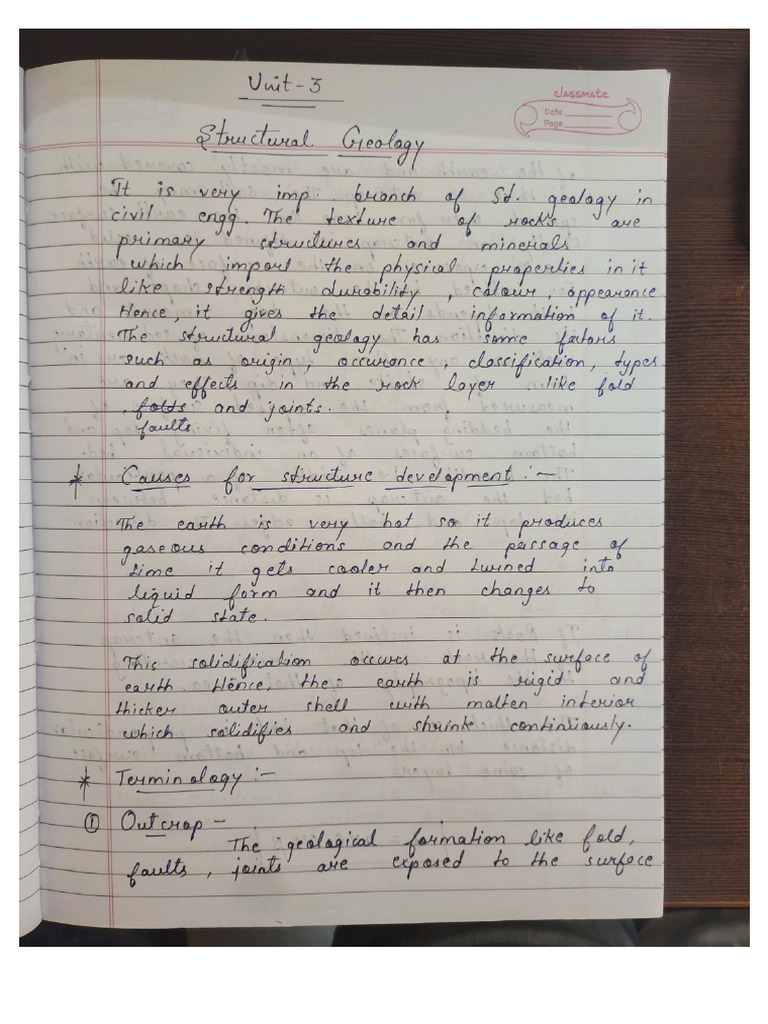 Unit - 3
classmate
Date
Page
Structural Geology
It is very imp. branch of St. geology in
civil engg. The texture of rocks are
primary structures and minerals
which import the physical properties in it
like strength durability, colour, appearence
Hence, it gives the detail information of it.
The structural geology has some factors
such as origin, occurance, classification, types
and effects in the rock layer like fold
, folds and joints.
faults
* Causes for structure development :-
The earth is very hot so it produces
gaseous conditions and the passage of
time it gets cooler and turned into
liquid form and it then changes to
solid state.
This solidification occurs at the surface of
earth. Hence, the earth is rigid and
thicker outer shell with molten interior
which solidifies and shrink continiously.
* Terminology :-
① Outcrop -
The geological formation like fold,
faults, joints are exposed to the surface